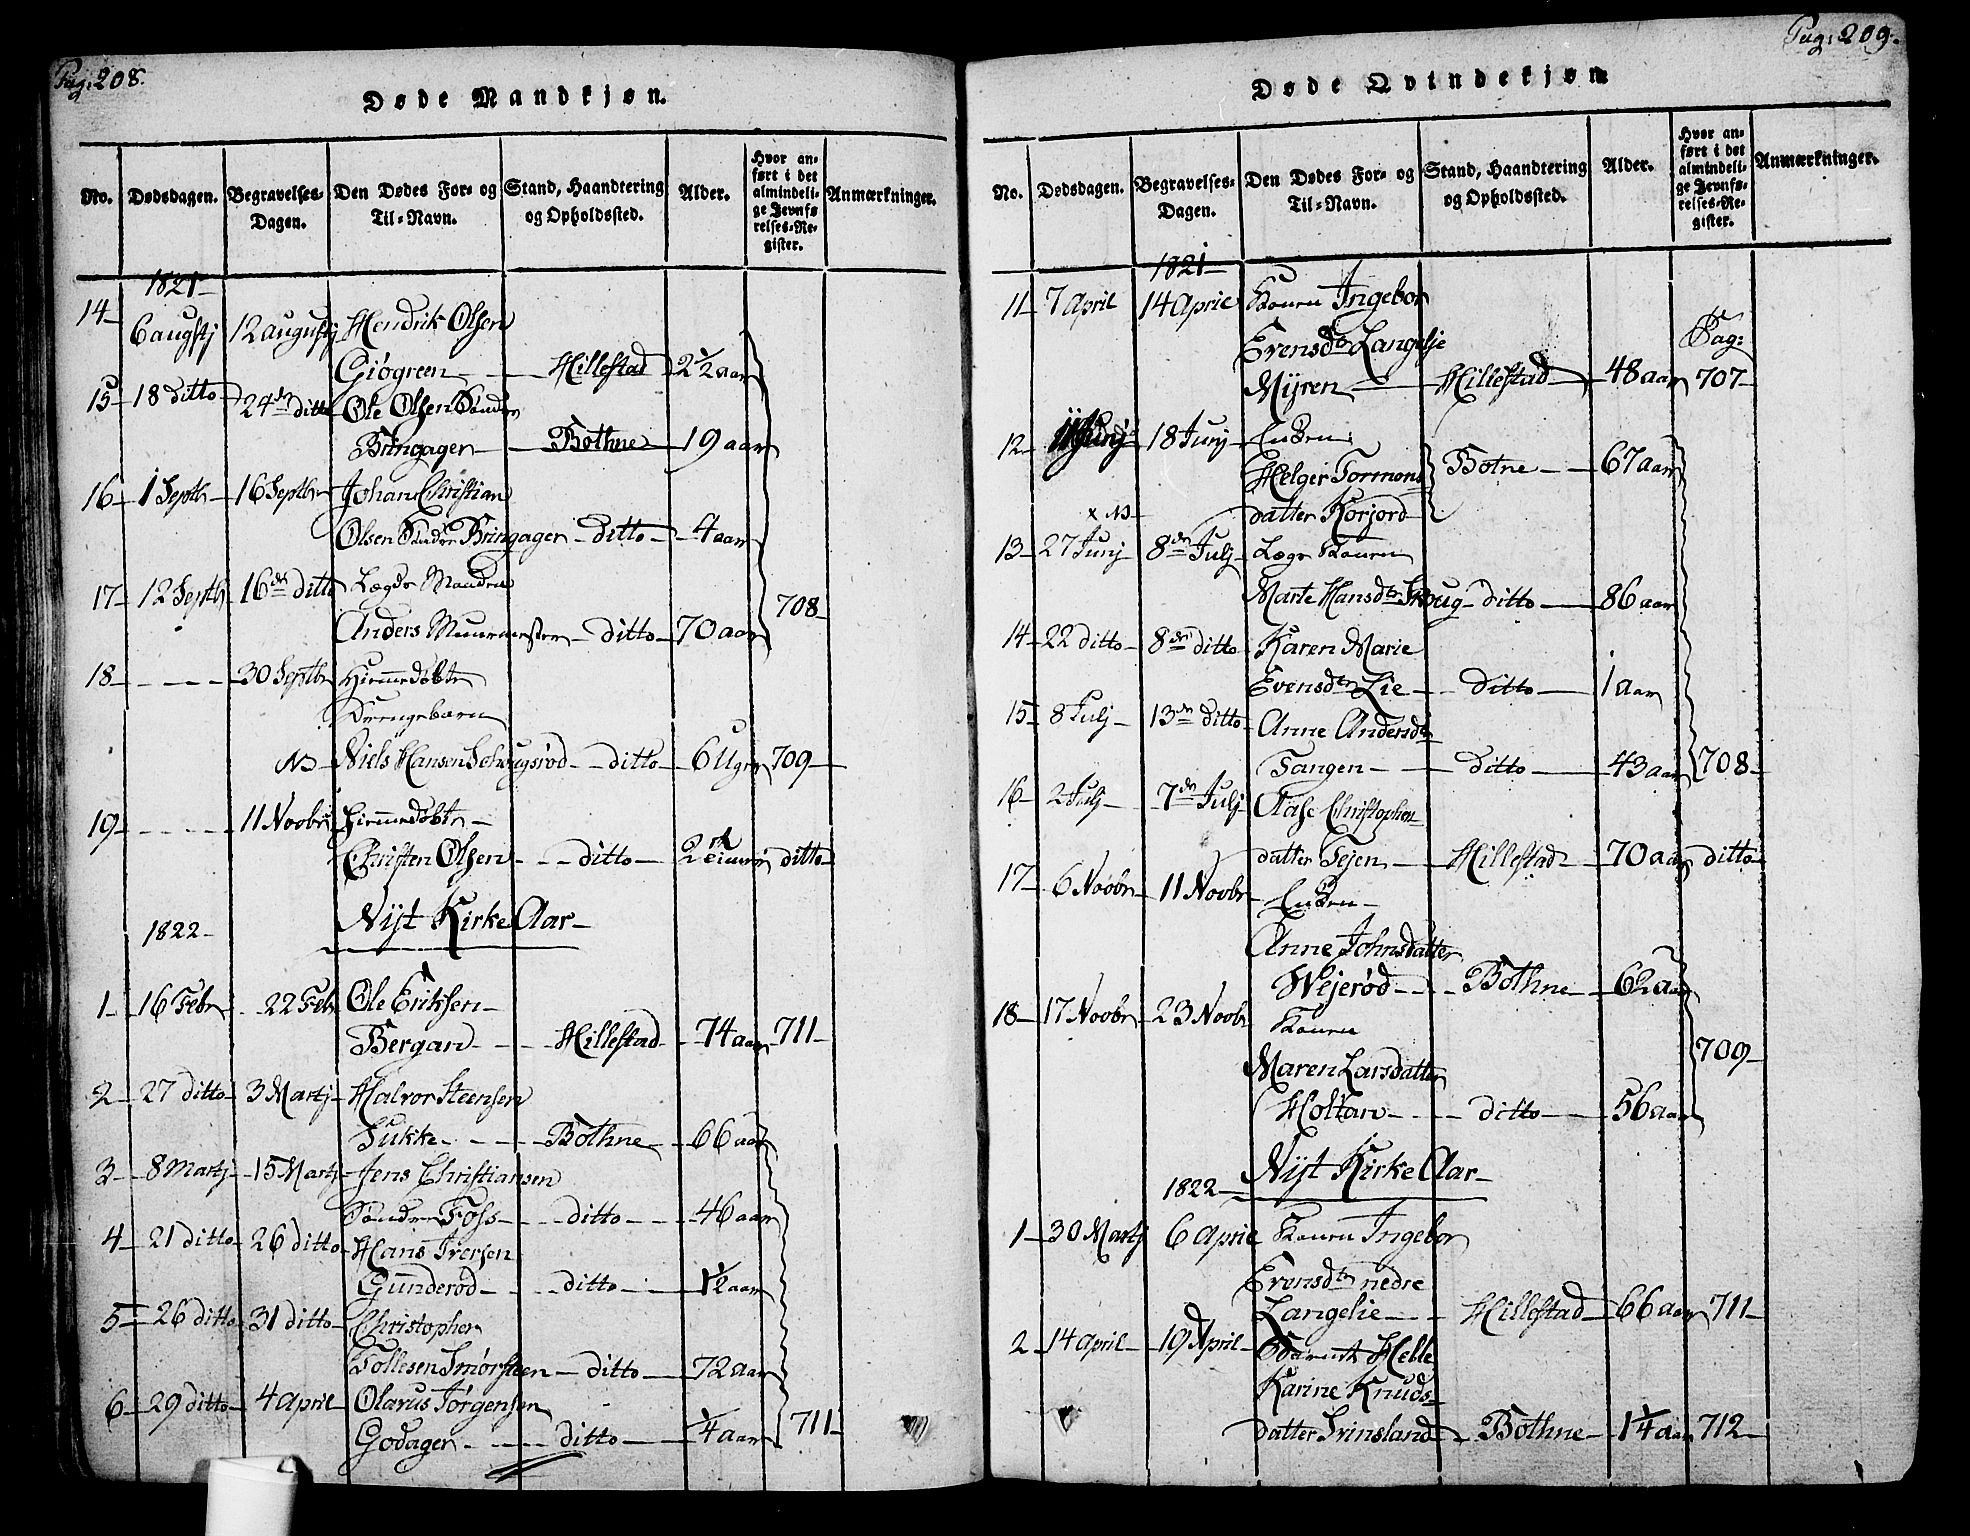 Pag: 208.
Døde Mandkjøn.
No. Dødsdagen. Begravelses-Dagen. Den Dødes For- og Til-Navn. Stand, Haandtering og Opholdssted. Alder. Hvor anført i det almindelige Jevnførelses-Register. Anmærkninger.
1821
14 6 augstj 12 augustj Hendrik Olsen
Giøgreen Hillestad 2½ aar
15 18 ditto 24de ditto Ole Olsen Søndre
Bringager Bothne 19 aar
16 1 Septbr 16 Septbr Johan Christian
Olsen Søndre Bringager ditto 4 aar
17 12 Septbr 16de ditto Lægds Manden
Anders Muurmester ditto 70 aar 708
18 30 Septbr Hiemmedøbte
Drengebarn
NB Niels Hansen ditto 6 Uger 709
19 11 Novbr Hiemmedøbte
Christen Olsen ditto 2 ditto
1822 Nyt Kirke Aar
1 16 Febr 22 Febr Ole Eriksen
Bergan Hillestad 74 aar 711
2 27 ditto 3 Martj Halvor Steensen
Sukke Bothne 66 aar
3 8 Martj 15 Martj Jens Christiansen
Søndre Foss ditto 46 aar
4 21 ditto 26 ditto Hans Iversen
Gunderød ditto 1½ aar
5 26 ditto 31 ditto Christopher
Tollesen Smørsteen ditto 72 aar
6 29 ditto 4 April Olarus Jørgensen
Godager ditto ¼ aar 711
Pag: 209.
Døde Qvindekjøn
No. Dødsdagen. Begravelses-Dagen. Den Dødes For- og Til-Navn. Stand, Haandtering og Opholdssted. Alder. Hvor anført i det almindelige Jevnførelses-Register. Anmærkninger.
1821
11 7 April 14 April Konen Ingebor
Evensdtr Langelie Pag:
Myren Hillestad 48 aar 707
12 11 Junj 18 Junj Enken
Helger Tormons Botne 67 aar
x NB datter Korjord
13 27 Junj 8de Julj Lægs Konen
Marte Hansdtr Skoug ditto 86 aar
14 22 ditto 8de ditto Karen Marie
Evensdtr Lie ditto 1 aar
15 8 Julj 13de ditto Anne Andersdtr
Tangen ditto 43 aar 708
16 2 Julj 7de Julj Aase Christophers
datter Tejen Hillestad 70 aar ditto
17 6 Novbr 11 Novbr Enken
Anne Johnsdatter
Wejerød Bothne 62 aar
18 17 Novbr 23 Novbr Konen
709
Maren Larsdatter
Holtan ditto 56 aar
Nyt Kirke Aar
1822
1 30 Martj 6 April Konen Ingebor
Evensdtr nedre
Langelie Hillestad 66 aar 711
2 14 April 19 April Helle
Karine Knuds
datter Srinsland Bothne 1¼ aar 712